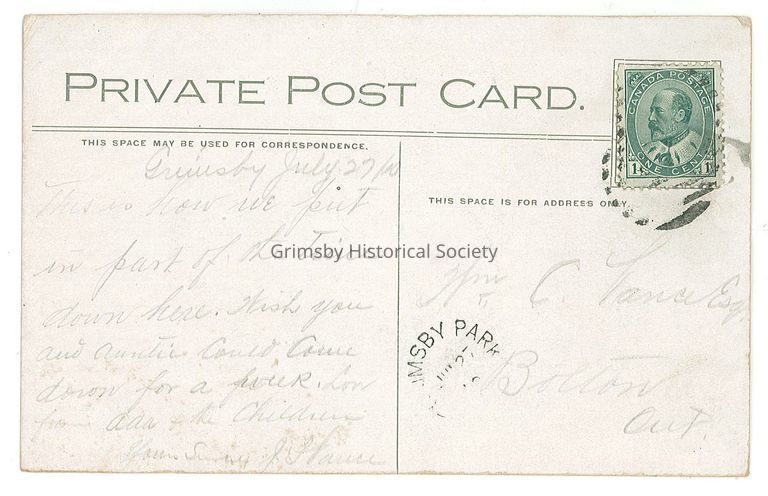 PRIVATE POST CARD.
CANADA POSTAGE
ONE CENT
THIS SPACE MAY BE USED FOR CORRESPONDENCE.
THIS SPACE IS FOR ADDRESS ONLY.
Grimsby July 27/10
This is how we put
in part of the Time
down here. Wish you
and Auntie Could Come
down for a week.
from all the Children
Yours J. Vance
Grimsby Historical Society
Wm C. Vance Esq
IMSBY PARK
Bolton
Ont.